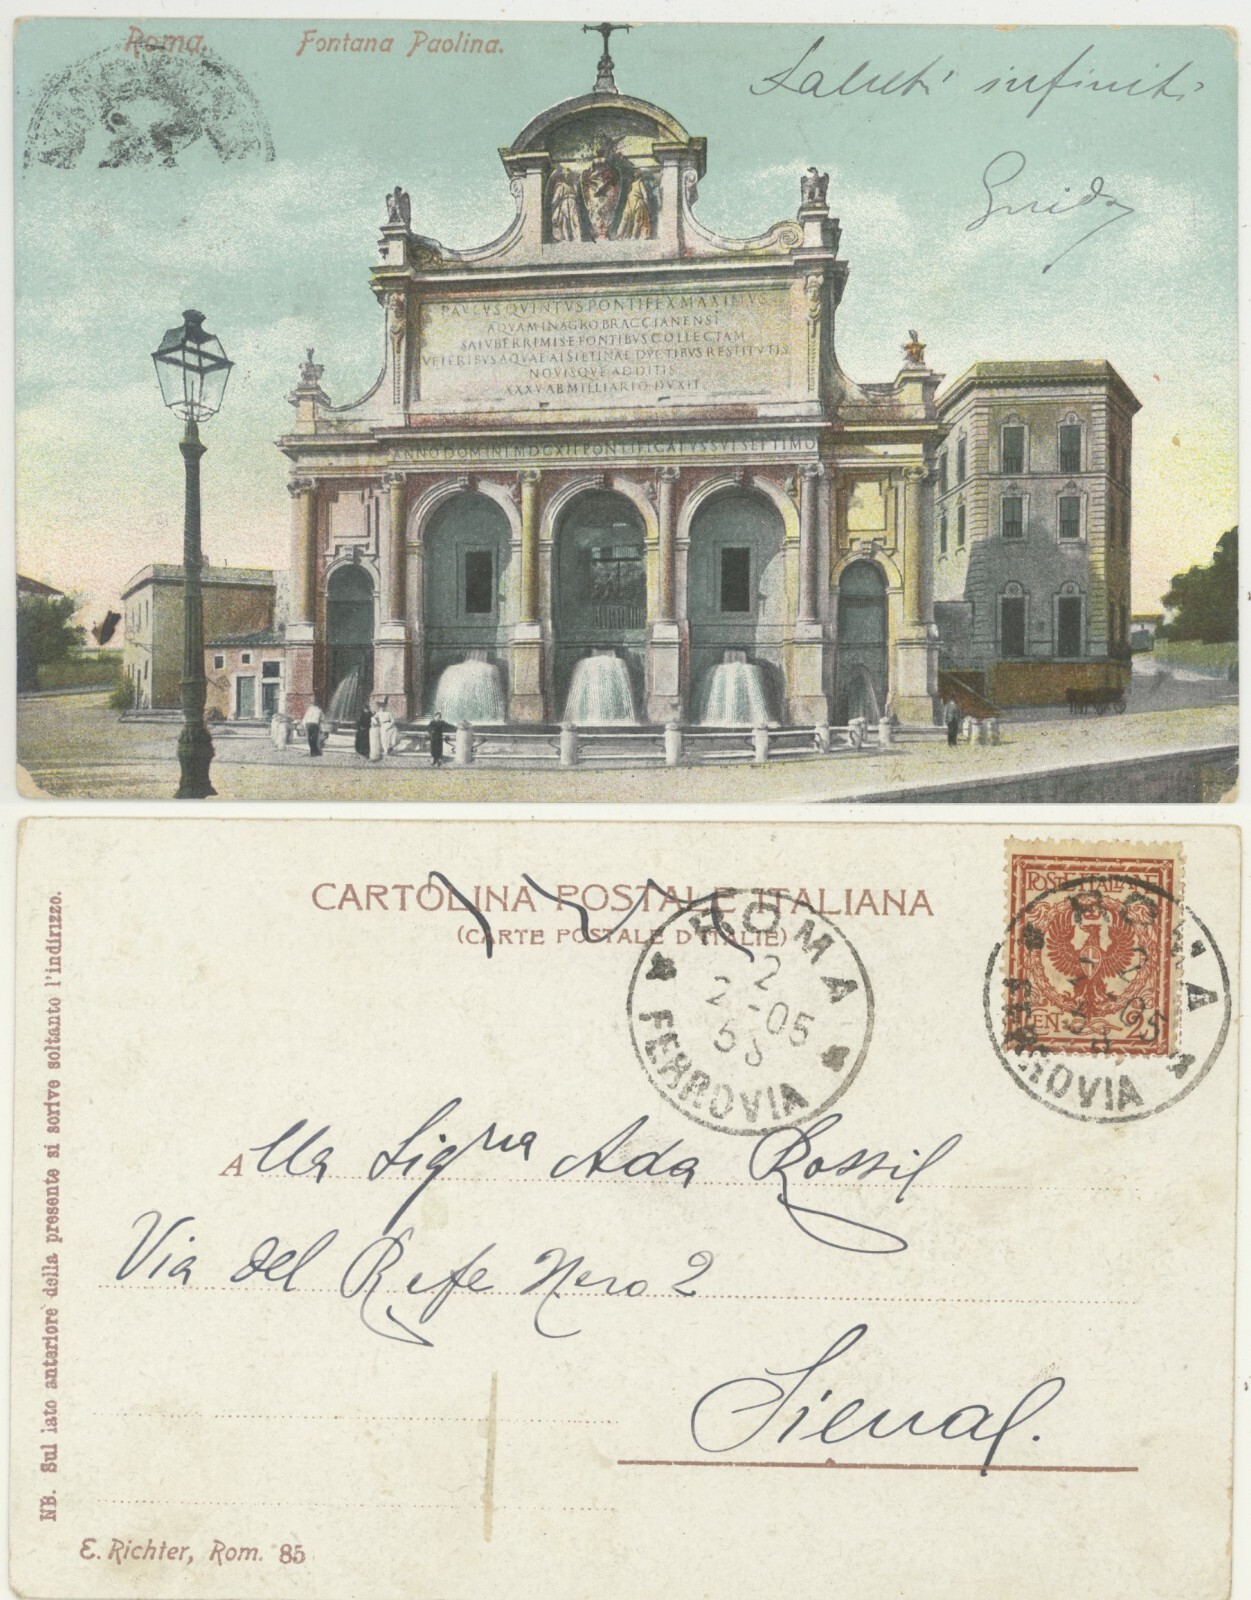 Roma. Fontana Paolina.
Saluti infiniti
Guido
PAVLVS QVINTVS PONTIFEX MAXIMVS
AQVAM IN AGRO BRACCIANENSI
SALVBERRIMIS E FONTIBVS COLLECTAM
VETERIBVS AQVAE ALSIETINAE DVCTIBVS RESTITVTIS
NOVISQVE ADDITIS
XXXV AB MILLIARIO DVXIT
ANNO DOMINI MDCXII PONTIFICATVS SVI SEPTIMO
CARTOLINA POSTALE ITALIANA
(CARTE POSTALE D'ITALIE)
POSTE ITALIANE
CEN 2
ROMA
2
2-05
5 S
FERROVIA
ROMA
2
2-05
5 S
FERROVIA
Alla Sigra Ada Rossi
Via del Refe Nero 2
Siena.
NB. Sul lato anteriore della presente si scrive soltanto l'indirizzo.
E. Richter, Rom. 85